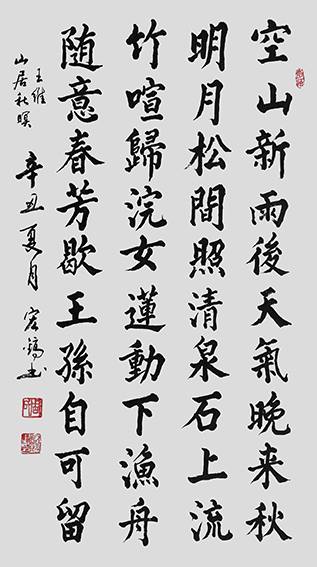 空山新雨後天氣晚来秋
明月松間照清泉石上流
竹喧歸浣女蓮動下漁舟
随意春芳歇王孫自可留
王維
山居秋暝
辛丑夏月